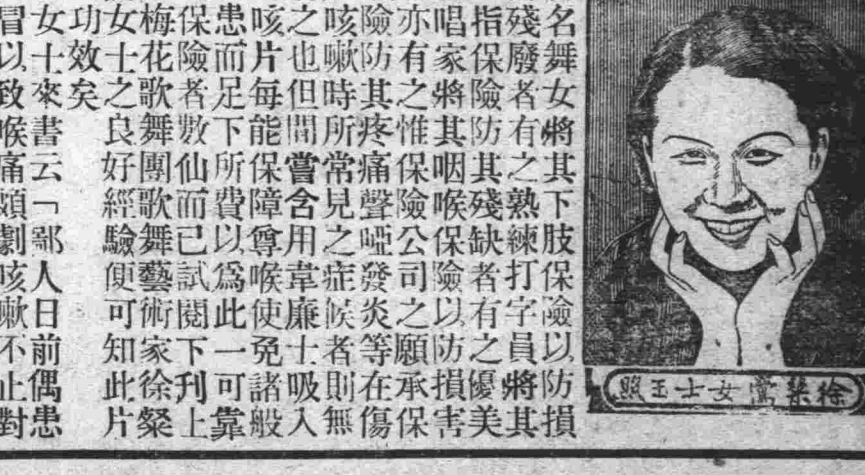 徐粲鶯女士玉照
名舞女將其下肢保險以防損
殘廢者有之熟練打字員將其
指保險防其殘缺者有之優美
唱家將其咽喉保險以防損害
亦有之惟保險公司之願承保
險防其疼痛聲啞發炎等在傷
咳嗽時所常見之症候者則無
之也但間嘗含用韋廉士吸入
咳片每能保障尊喉使免諸般
患而足下所費以爲此一可靠
保險者數仙而已試閱下刊上
梅花歌舞團歌舞藝術家徐粲
女士之良好經驗便可知此片
功效矣
女士來書云「鄙人日前偶患
冒以致喉痛頗劇咳嗽不止對